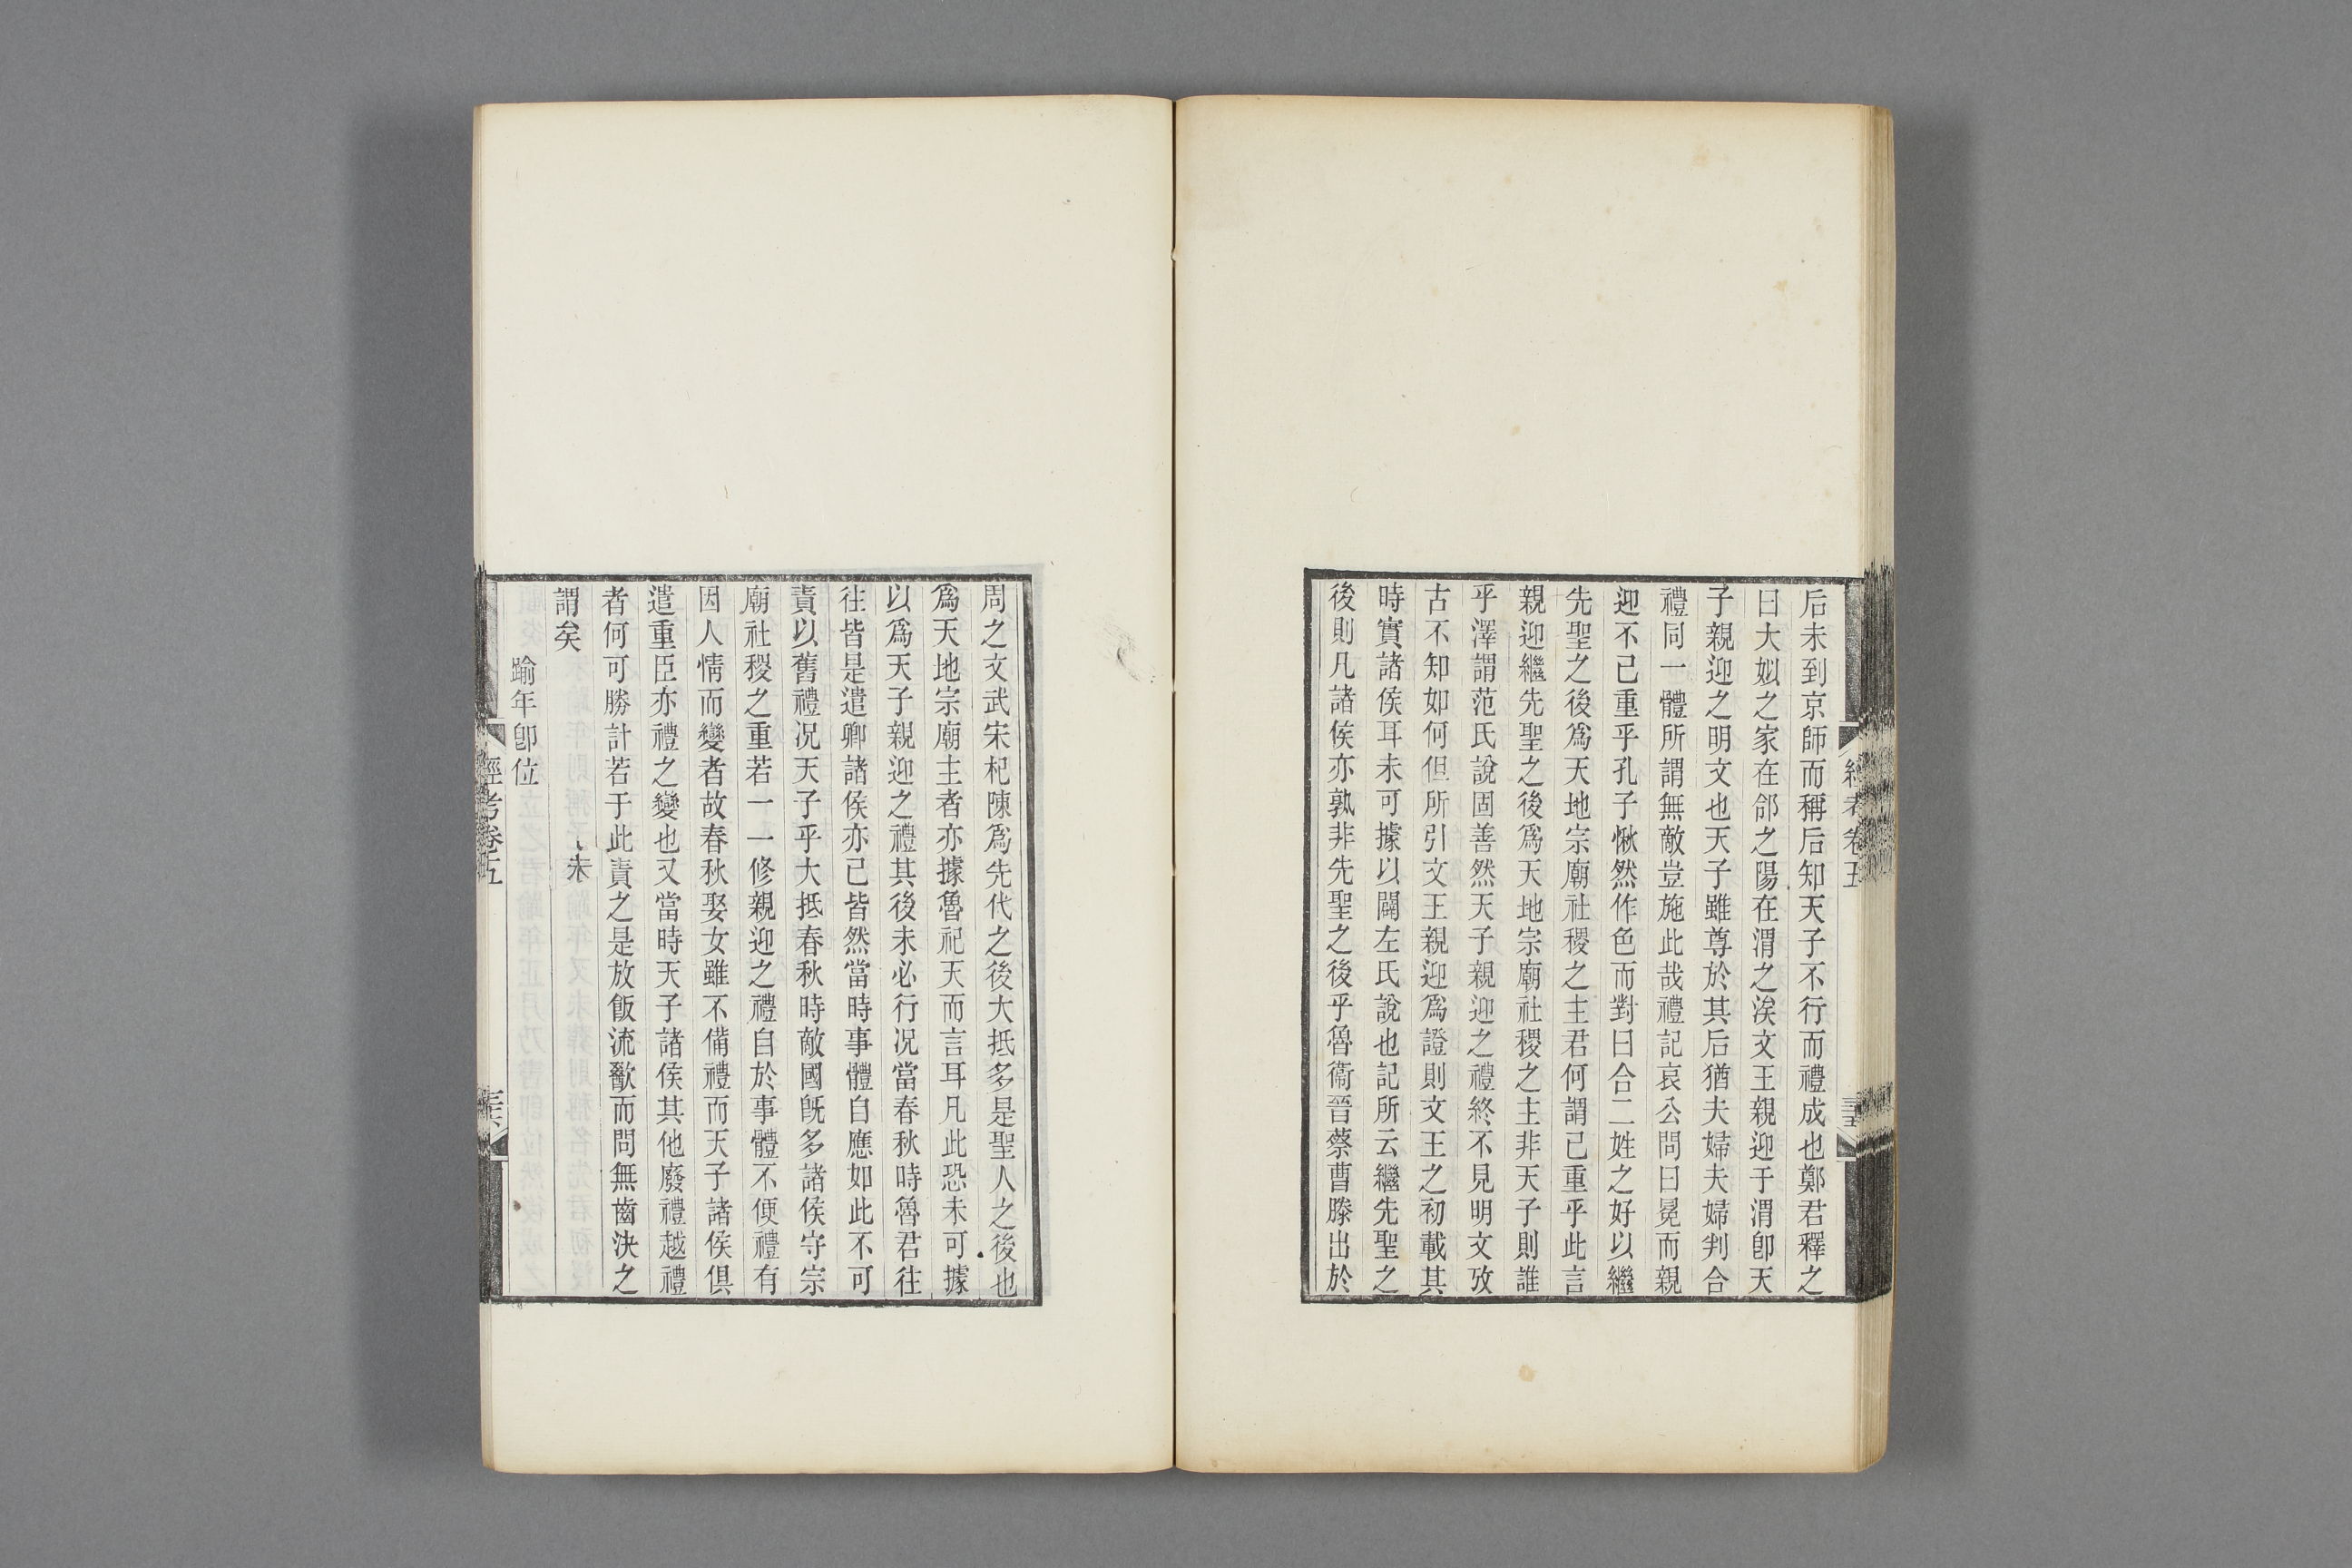 后未到京師而稱后知天子不行而禮成也鄭君釋之
曰大姒之家在郃之陽在渭之涘文王親迎于渭卽天
子親迎之明文也天子雖尊於其后猶夫婦夫婦判合
禮同一體所謂無敵豈施此哉禮記哀公問曰冕而親
迎不已重乎孔子愀然作色而對曰合二姓之好以繼
先聖之後爲天地宗廟社稷之主君何謂已重乎此言
親迎繼先聖之後爲天地宗廟社稷之主非天子則誰
乎澤謂范氏說固善然天子親迎之禮終不見明文攷
古不知如何但所引文王親迎爲證則文王之初載其
時實諸侯耳未可據以闢左氏說也記所云繼先聖之
後則凡諸侯亦孰非先聖之後乎魯衞晉蔡曹滕出於
經考卷五
周之文武宋杞陳爲先代之後大抵多是聖人之後也
爲天地宗廟主者亦據魯祀天而言耳凡此恐未可據
以爲天子親迎之禮其後未必行况當春秋時魯君往
往皆是遣卿諸侯亦已皆然當時事體自應如此不可
責以舊禮况天子乎大抵春秋時敵國旣多諸侯守宗
廟社稷之重若一一修親迎之禮自於事體不便禮有
因人情而變者故春秋娶女雖不備禮而天子諸侯俱
遣重臣亦禮之變也又當時天子諸侯其他廢禮越禮
者何可勝計若于此責之是放飯流歠而問無齒決之
謂矣
踰年卽位
經考卷五